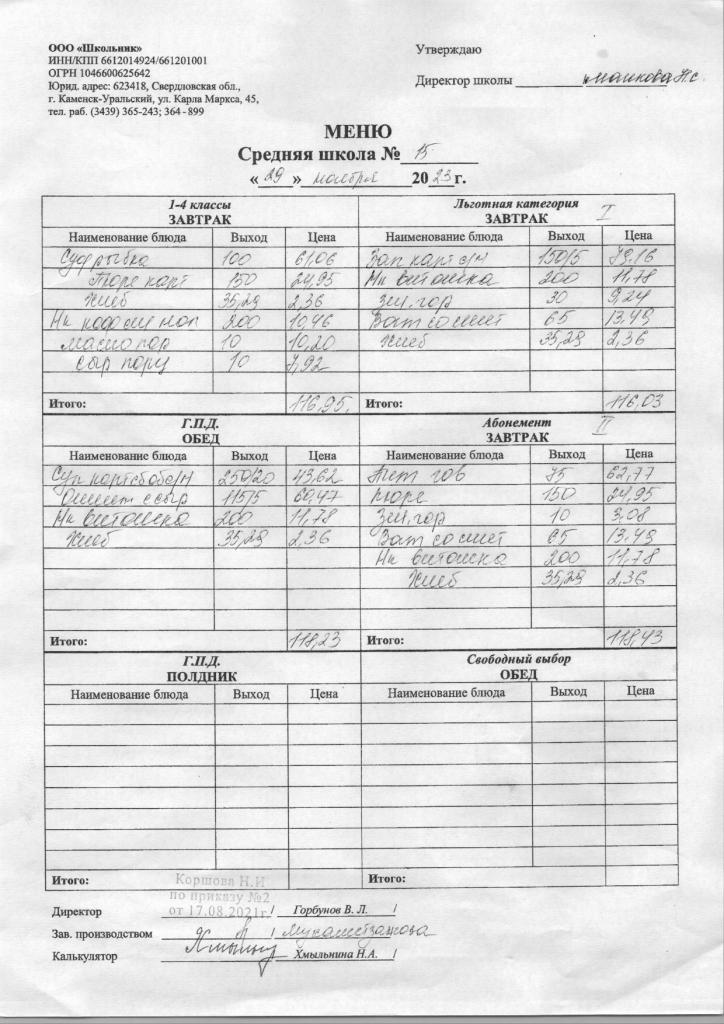 ООО «Школьник»
ИНН/КПП 6612014924/661201001
ОГРН 1046600625642
Юрид. адрес: 623418, Свердловская обл.,
г. Каменск-Уральский, ул. Карла Маркса, 45,
тел. раб. (3439) 365-243; 364 - 899
Утверждаю
Директор школы
МЕНЮ
Средняя школа № 15
« 29 » ноября 2023 г.
1-4 классы
ЗАВТРАК
Наименование блюда Выход Цена
Суфле рыбка 100 61,06
Пюре карт 150 24,95
Хлеб 35,29 2,36
Нк кофе с мол 200 10,46
масло пор 10 10,20
сыр порц 10 7,92
Итого: 116,95
Льготная категория I
ЗАВТРАК
Наименование блюда Выход Цена
Зап карт с/м 150/5 79,16
Нк витошка 200 11,78
Зел, гор 30 9,24
Бат со смет 65 13,49
Хлеб 35,29 2,36
Итого: 116,03
Г.П.Д.
ОБЕД
Наименование блюда Выход Цена
Суп карт с боб с/м 250/20 43,62
Омлет с сыр 115/5 60,47
Нк витошка 200 11,78
Хлеб 35,29 2,36
Итого: 118,23
Абонемент II
ЗАВТРАК
Наименование блюда Выход Цена
Теф гов 75 62,77
пюре 150 24,95
Зел, гор 10 3,08
Бат со смет 65 13,49
Нк витошка 200 11,78
Хлеб 35,29 2,36
Итого: 118,43
Г.П.Д.
ПОЛДНИК
Наименование блюда Выход Цена
Итого:
Свободный выбор
ОБЕД
Наименование блюда Выход Цена
Итого:
Коршова Н.И
по приказу №2
от 17.08.2021г
Директор / Горбунов В. Л. /
Зав. производством
Калькулятор / Хмыльнина Н.А. /